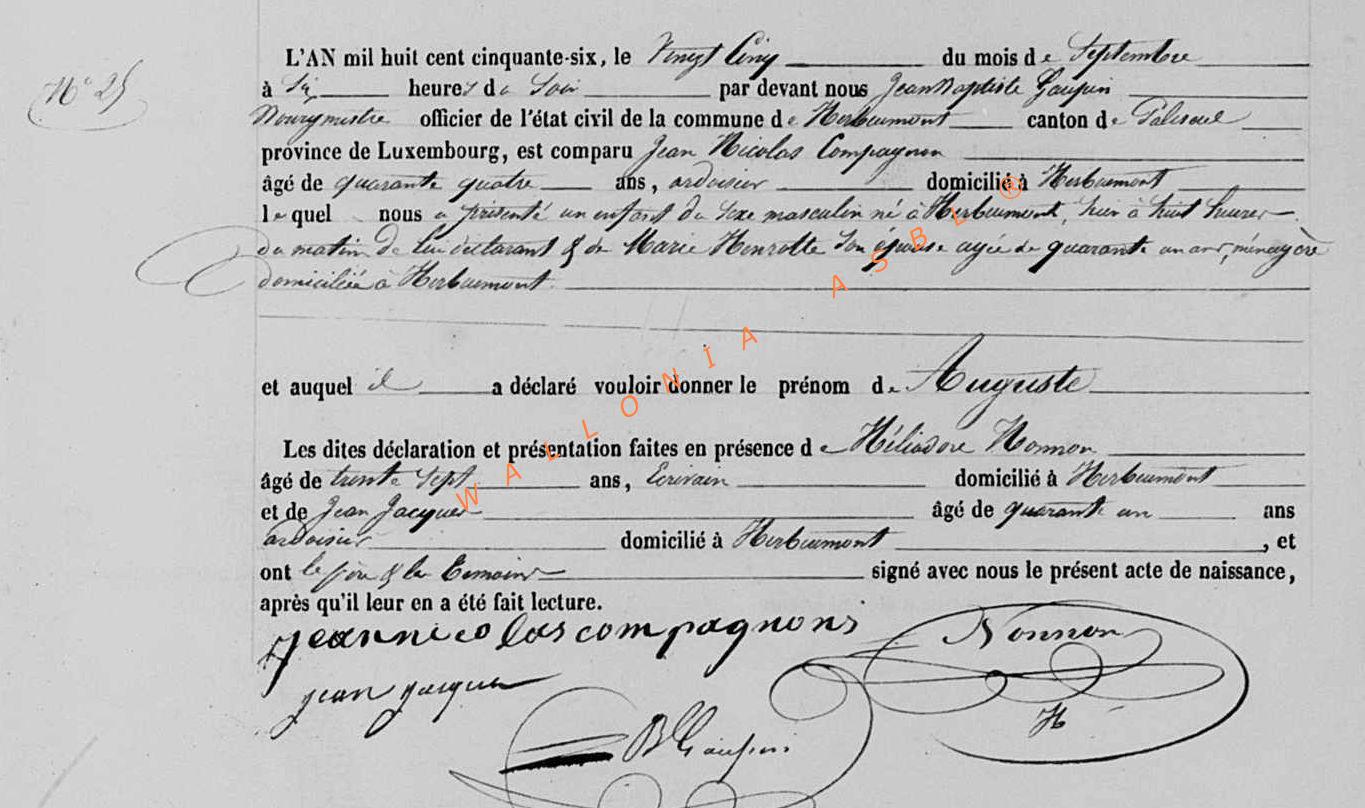 N° 25
L'AN mil huit cent cinquante-six, le Vingt Cinq du mois de Septembre
à Six heures du Soir par devant nous Jean Baptiste Gaupin
Bourgmestre officier de l'état civil de la commune de Herbeumont canton de Paliseul
province de Luxembourg, est comparu Jean Nicolas Compagnon
âgé de quarante quatre ans, ardoisier domicilié à Herbeumont
lequel nous a présenté un enfant du Sexe masculin né à Herbeumont, hier à huit heures
du matin de lui déclarant & de Marie Henrotte Son épouse agée de quarante un ans, ménagère
domiciliée à Herbeumont.
et auquel il a déclaré vouloir donner le prénom de Auguste
Les dites déclaration et présentation faites en présence de Héliodore Nonnon
âgé de trente Sept ans, Ecrivain domicilié à Herbeumont
et de Jean Jacques âgé de quarante un ans
ardoisier domicilié à Herbeumont, et
ont le père & les temoins signé avec nous le présent acte de naissance,
après qu'il leur en a été fait lecture.
jeannicolascompagnons
Nonnon
jean jacques
H
B Gaupin
WALLONIA ASBL ®